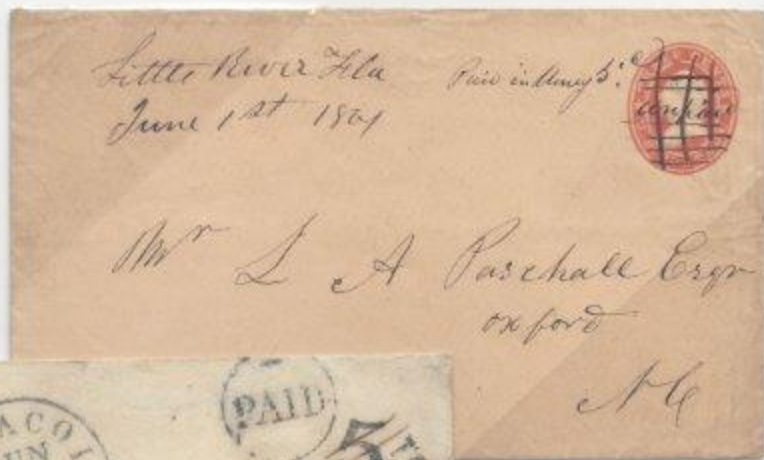 Little River Fla
June 1st 1861
Paid in Money 5c
Mr L A Paschall Esqr
Oxford
NC
PAID
ACOL
UN
5